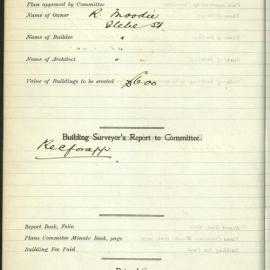 Plan approved by Committee
Name of Owner R. Moodie
Glebe St.
Name of Builder "
" "
Name of Architect " "
Value of Buildings to be erected £600
Building Surveyor's Report to Committee.
Rec for app
Report Book, Folio
Plans Committee Minute Book, page
Building Fee Paid